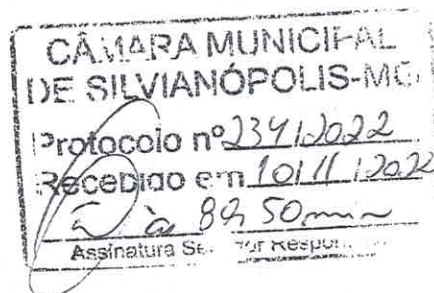 CÂMARA MUNICIPAL
DE SILVIANÓPOLIS-MG
Protocolo nº 234/2022
Recebido em 10/11/2022
às 8h 50min
Assinatura